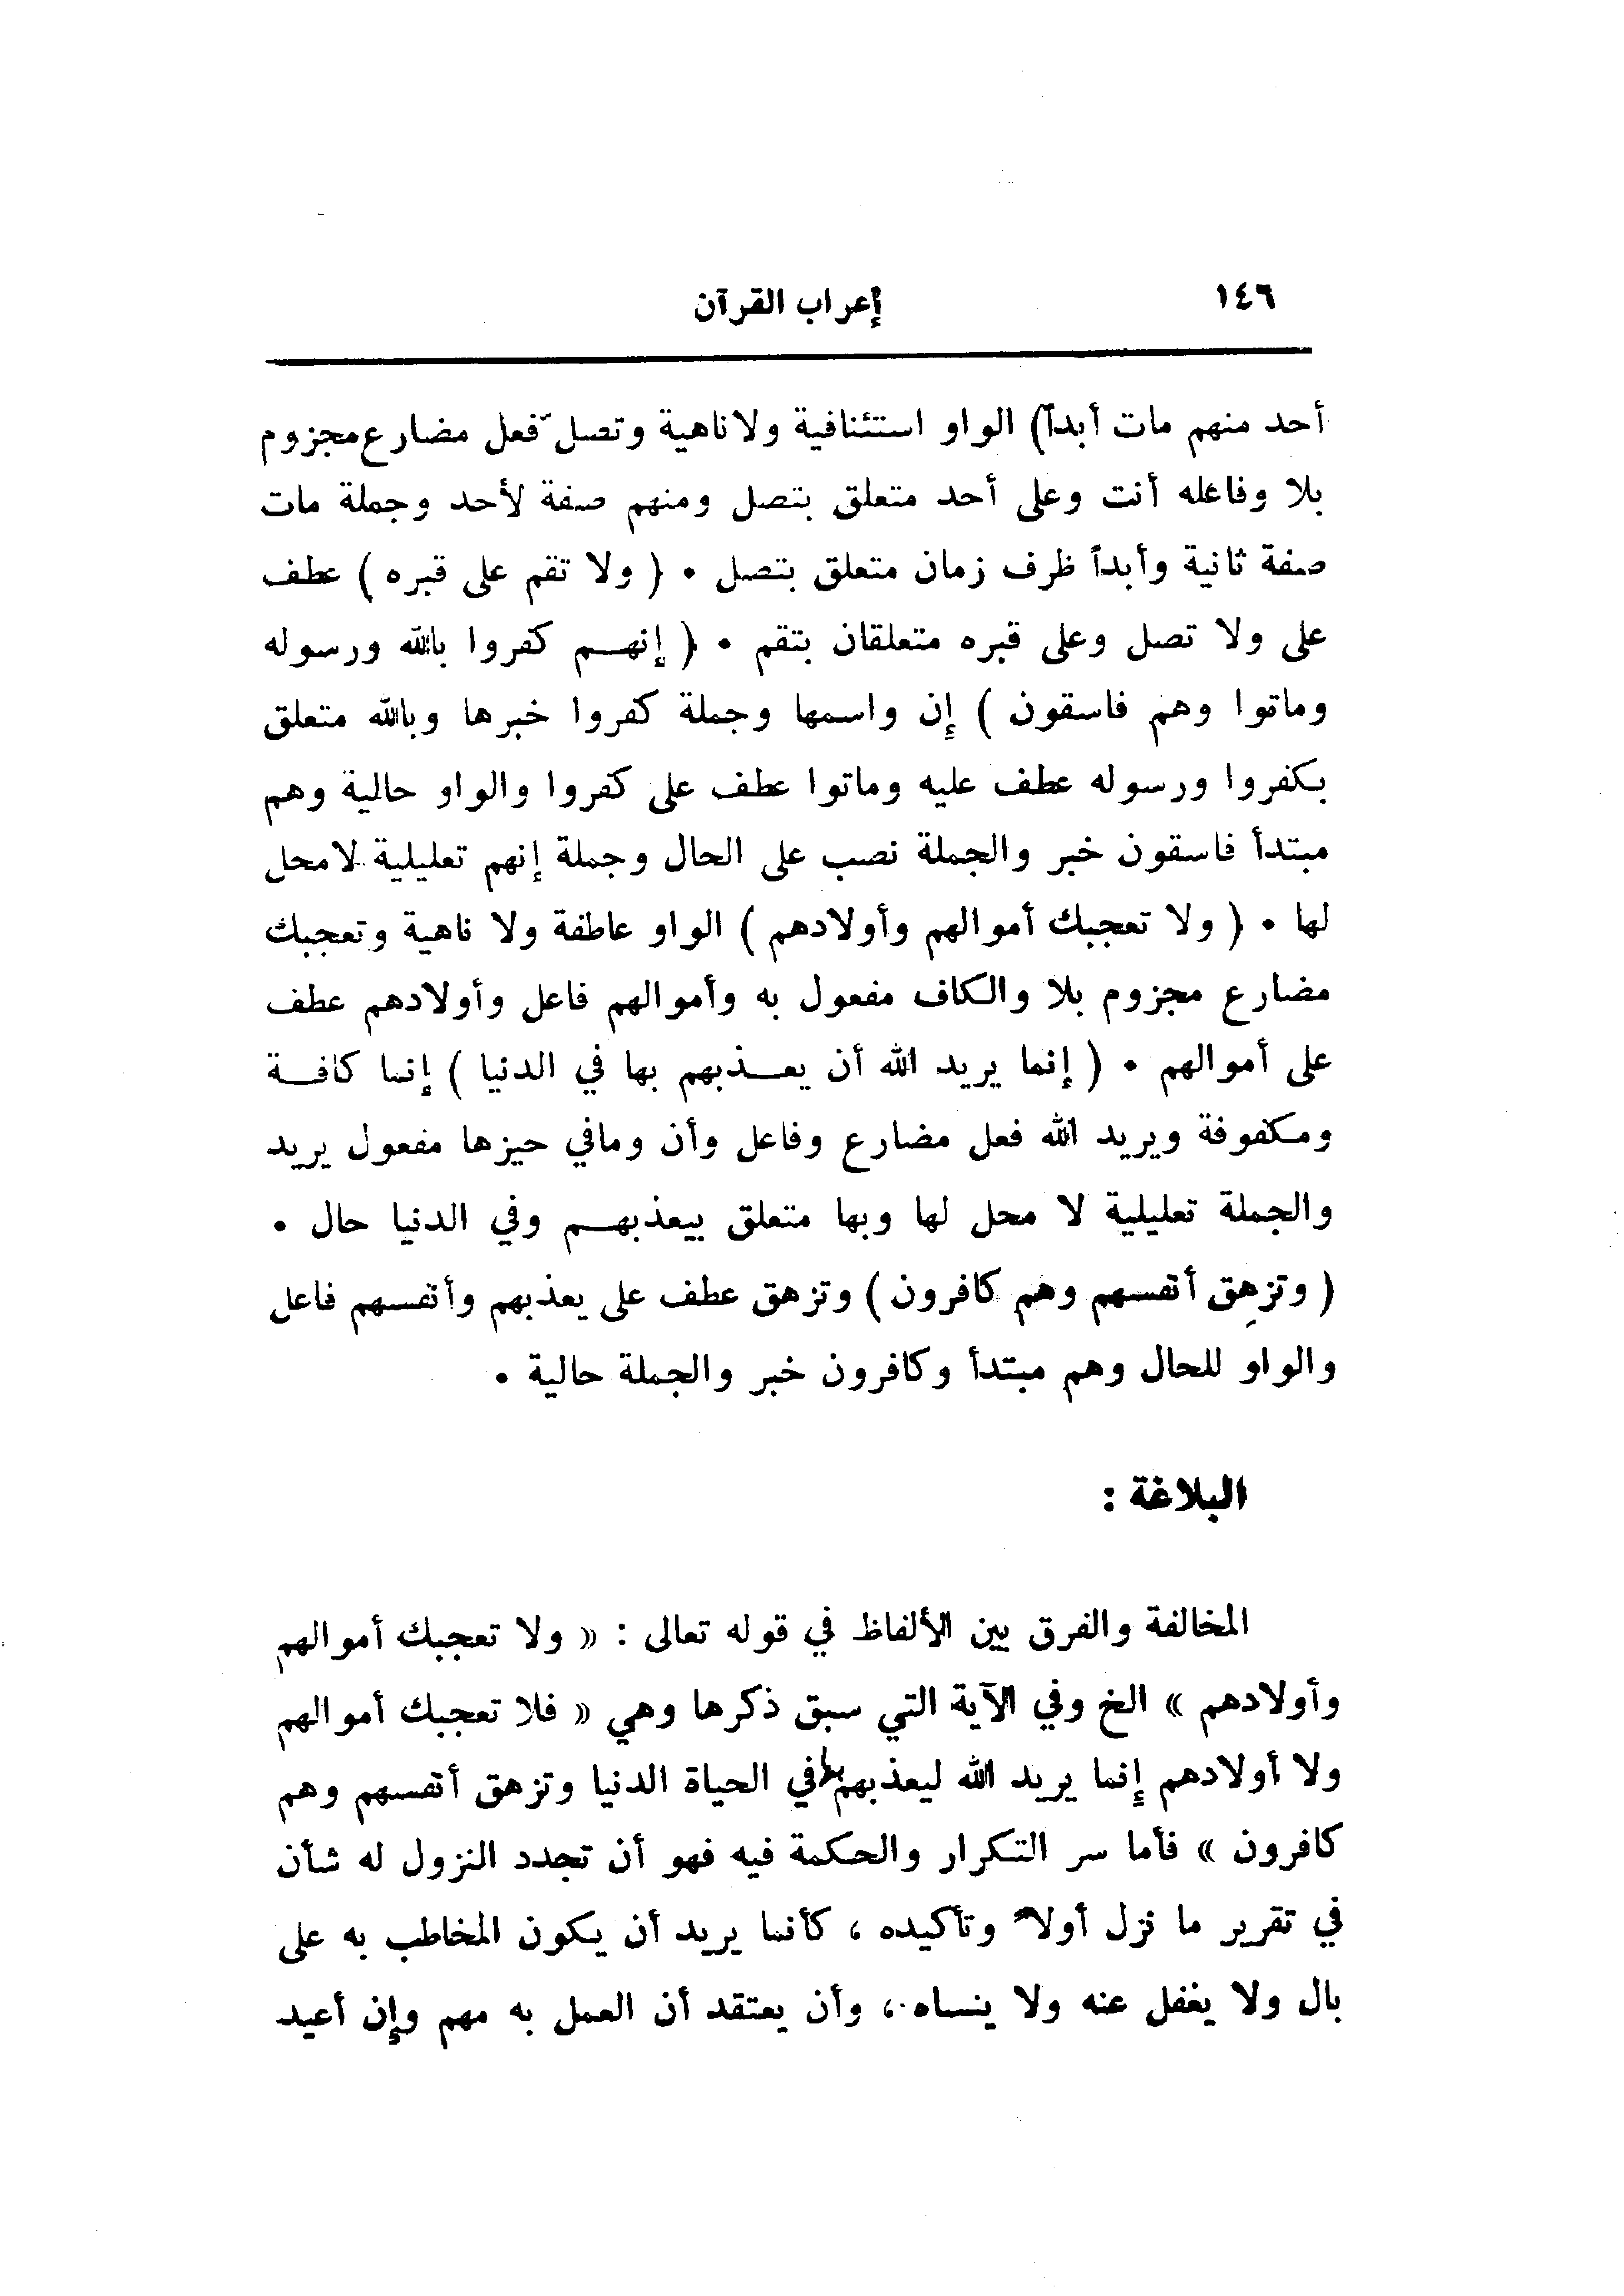 ١٤٦ إعراب القرآن
أحد منهم مات أبداً) الواو استئنافية ولا ناهية وتصل فعل مضارع مجزوم
بلا وفاعله أنت وعلى أحد متعلق بتصل ومنهم صفة لأحد وجملة مات
صفة ثانية وأبداً ظرف زمان متعلق بتصل . ( ولا تقم على قبره ) عطف
على ولا تصل وعلى قبره متعلقان بتقم . ( إنهم كفروا بالله ورسوله
وماتوا وهم فاسقون ) إن واسمها وجملة كفروا خبرها وبالله متعلق
بكفروا ورسوله عطف عليه وماتوا عطف على كفروا والواو حالية وهم
مبتدأ فاسقون خبر والجملة نصب على الحال وجملة إنهم تعليلية لا محل
لها . ( ولا تعجبك أموالهم وأولادهم ) الواو عاطفة ولا ناهية وتعجبك
مضارع مجزوم بلا والكاف مفعول به وأموالهم فاعل وأولادهم عطف
على أموالهم . ( إنما يريد الله أن يعذبهم بها في الدنيا ) إنما كافة
ومكفوفة ويريد الله فعل مضارع وفاعل وأن ومافي حيزها مفعول يريد
والجملة تعليلية لا محل لها وبها متعلق بيعذبهم وفي الدنيا حال .
( وتزهق أنفسهم وهم كافرون ) وتزهق عطف على يعذبهم وأنفسهم فاعل
والواو للحال وهم مبتدأ وكافرون خبر والجملة حالية .
البلاغة :
المخالفة والفرق بين الألفاظ في قوله تعالى : « ولا تعجبك أموالهم
وأولادهم » الخ وفي الآية التي سبق ذكرها وهي « فلا تعجبك أموالهم
ولا أولادهم إنما يريد الله ليعذبهم بها في الحياة الدنيا وتزهق أنفسهم وهم
كافرون » فأما سر التكرار والحكمة فيه فهو أن تجدد النزول له شأن
في تقرير ما نزل أولاً وتأكيده ، كأنما يريد أن يكون المخاطب به على
بال ولا يغفل عنه ولا ينساه ، وأن يعتقد أن العمل به مهم وإن أعيد